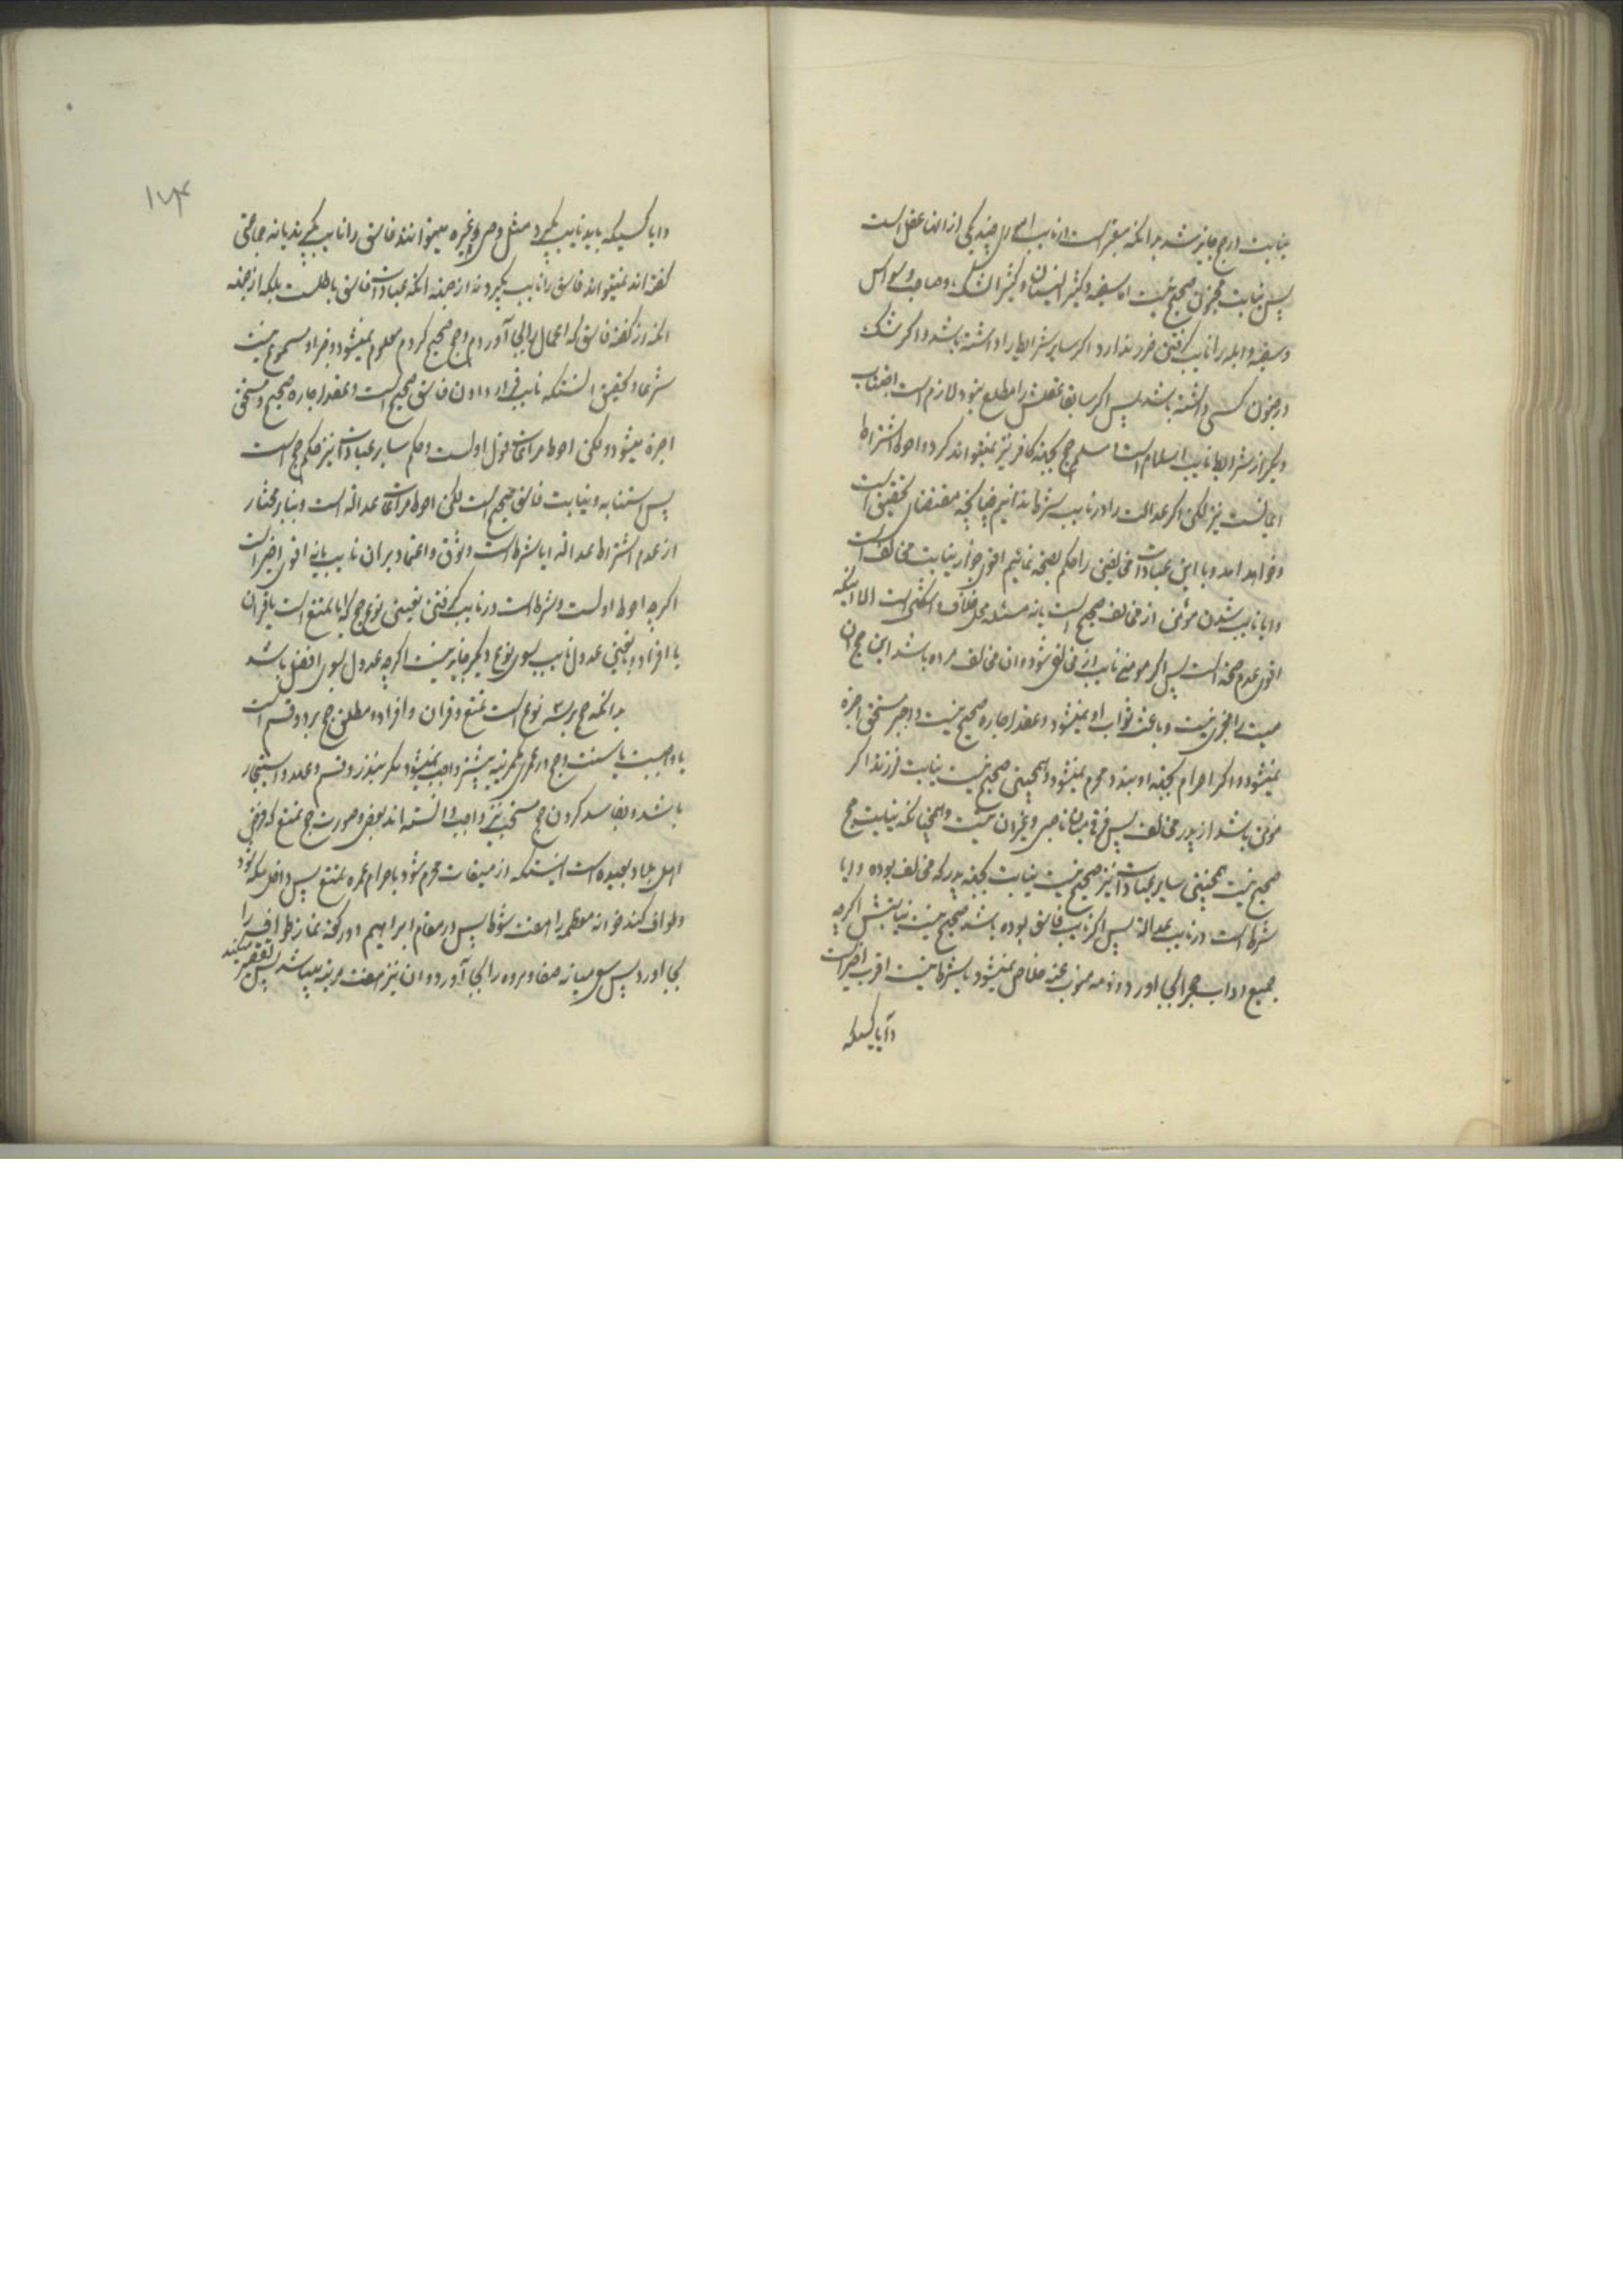 نیابت در حج جایز شد بدانکه معتبر است در نایب اموری چند یکی از آنها عقل است
پس نیابت مجنون صحیح نیست اما سفیه و کثیر النسیان و کثیر الشک و صاحب وسواس
و سفیه و ابله را نایب گرفتن ضرر ندارد اگر سایر شرایط را داشته باشد و اگر شک
در جنون کسی داشته باشد پس اگر سابقا بعقلش مطلع نبود لازم است اجتناب
دیگر از شرایط نایب اسلام است مسلم حج بجهة کافر نیز نمیتواند کرد و احوط اشتراط
ایمانست نیز لکن اگر عدالت را در نایب شرط ندانیم چنانچه مقتضای تحقیق است
و خواهد امد و با این عبادات مخالفین را حکم بصحة نمائیم اقوی جواز نیابت مخالف است
و ایا نایب شدن مؤمن از مخالف صحیح است یا نه مسئله محل خلاف و اشکال است الا اینکه
اقوی عدم صحة است پس اگر مومنی نایب از مخالفی شود و ان مخالف مرده باشد این حج ان
میت را مجزی نیست و باعث ثواب او نمیشود و عقد اجاره صحیح نیست و اجیر مستحق اجرة
نمیشود و اگر احرام بجهة او ببندد محرم نمیشود و همچنین صحیح نیست نیابت فرزند اگر
مؤمن باشد از پدر مخالف پس فرقی میان ناصبی و غیر ان نیست و همچنانکه نیابت حج
صحیح نیست همچنین سایر عبادات نیز صحیح نیست نیابت بجهة پدر که مخالف بوده و ایا
شرط است در نایب عدالة پس اگر نایب فاسق بوده باشد صحیح نیست نیابتش اگر چه
جمیع اداب حج را بجا اورد و ذمه منوب عنه خلاص نمیشود یا شرط نیست اقرب اخیر است
و آیا کسیکه
۱۷۴
و ایا کسیکه باید نایب بگیرد مثل وصی و غیره میتوانند فاسق را نایب بگیرند یا نه جماعتی
گفته اند نمیتواند فاسق را نایب بگیرد نه از جهة انکه عبادات فاسق باطلست بلکه از جهة
انکه از گفته فاسق که اعمال را بجا آوردم و حج صحیح کردم معلوم نمیشود و خبر او مسموع نیست
شرعا و تحقیق انستکه نایب قرار دادن فاسق صحیح است و عقد اجاره صحیح و مستحق
اجرة میشود و لکن احوط مراعات قول اولست و حکم سایر عبادات نیز حکم حج است
پس استنابه و نیابت فاسق صحیح است لکن احوط مراعات عدالة است و بنابر مختار
از عدم اشتراط عدالة ایا شرط است وثوق و اعتماد بران نایب یا نه اقوی اخیر است
اگرچه احوط اولست و شرط است در نایب گرفتن تعیین نوع حج که ایا تمتع است یا قران
یا افراد و همچنین عدول نایب بسوی نوع دیگر جایز نیست اگرچه عدول بسوی افضل باشد
بدانکه حج بر سه نوع است تمتع و قران و افراد و مطلق حج بر دو قسم است
یا واجبست یا سنت و حج در عمر یکمرتبه بیشتر واجب نمیشود مگر بنذر و قسم و عهد و استیجار
باشد و بفاسد کردن حج مستحبی نیز واجب دانسته اند بعضی و صورت حج تمتع که فرض
اهل بلاد بعیده است اینستکه از میقات محرم شود باحرام عمره تمتع پس داخل مکه شود
و طواف کند خوانه معظمه را هفت شوط پس در مقام ابراهیم دو رکعة نماز طواف را
بجا اورد پس سعی میانه صفا و مروه را بجا آورد و ان نیز هفت مرتبه میباشد پس تقصیر میکند